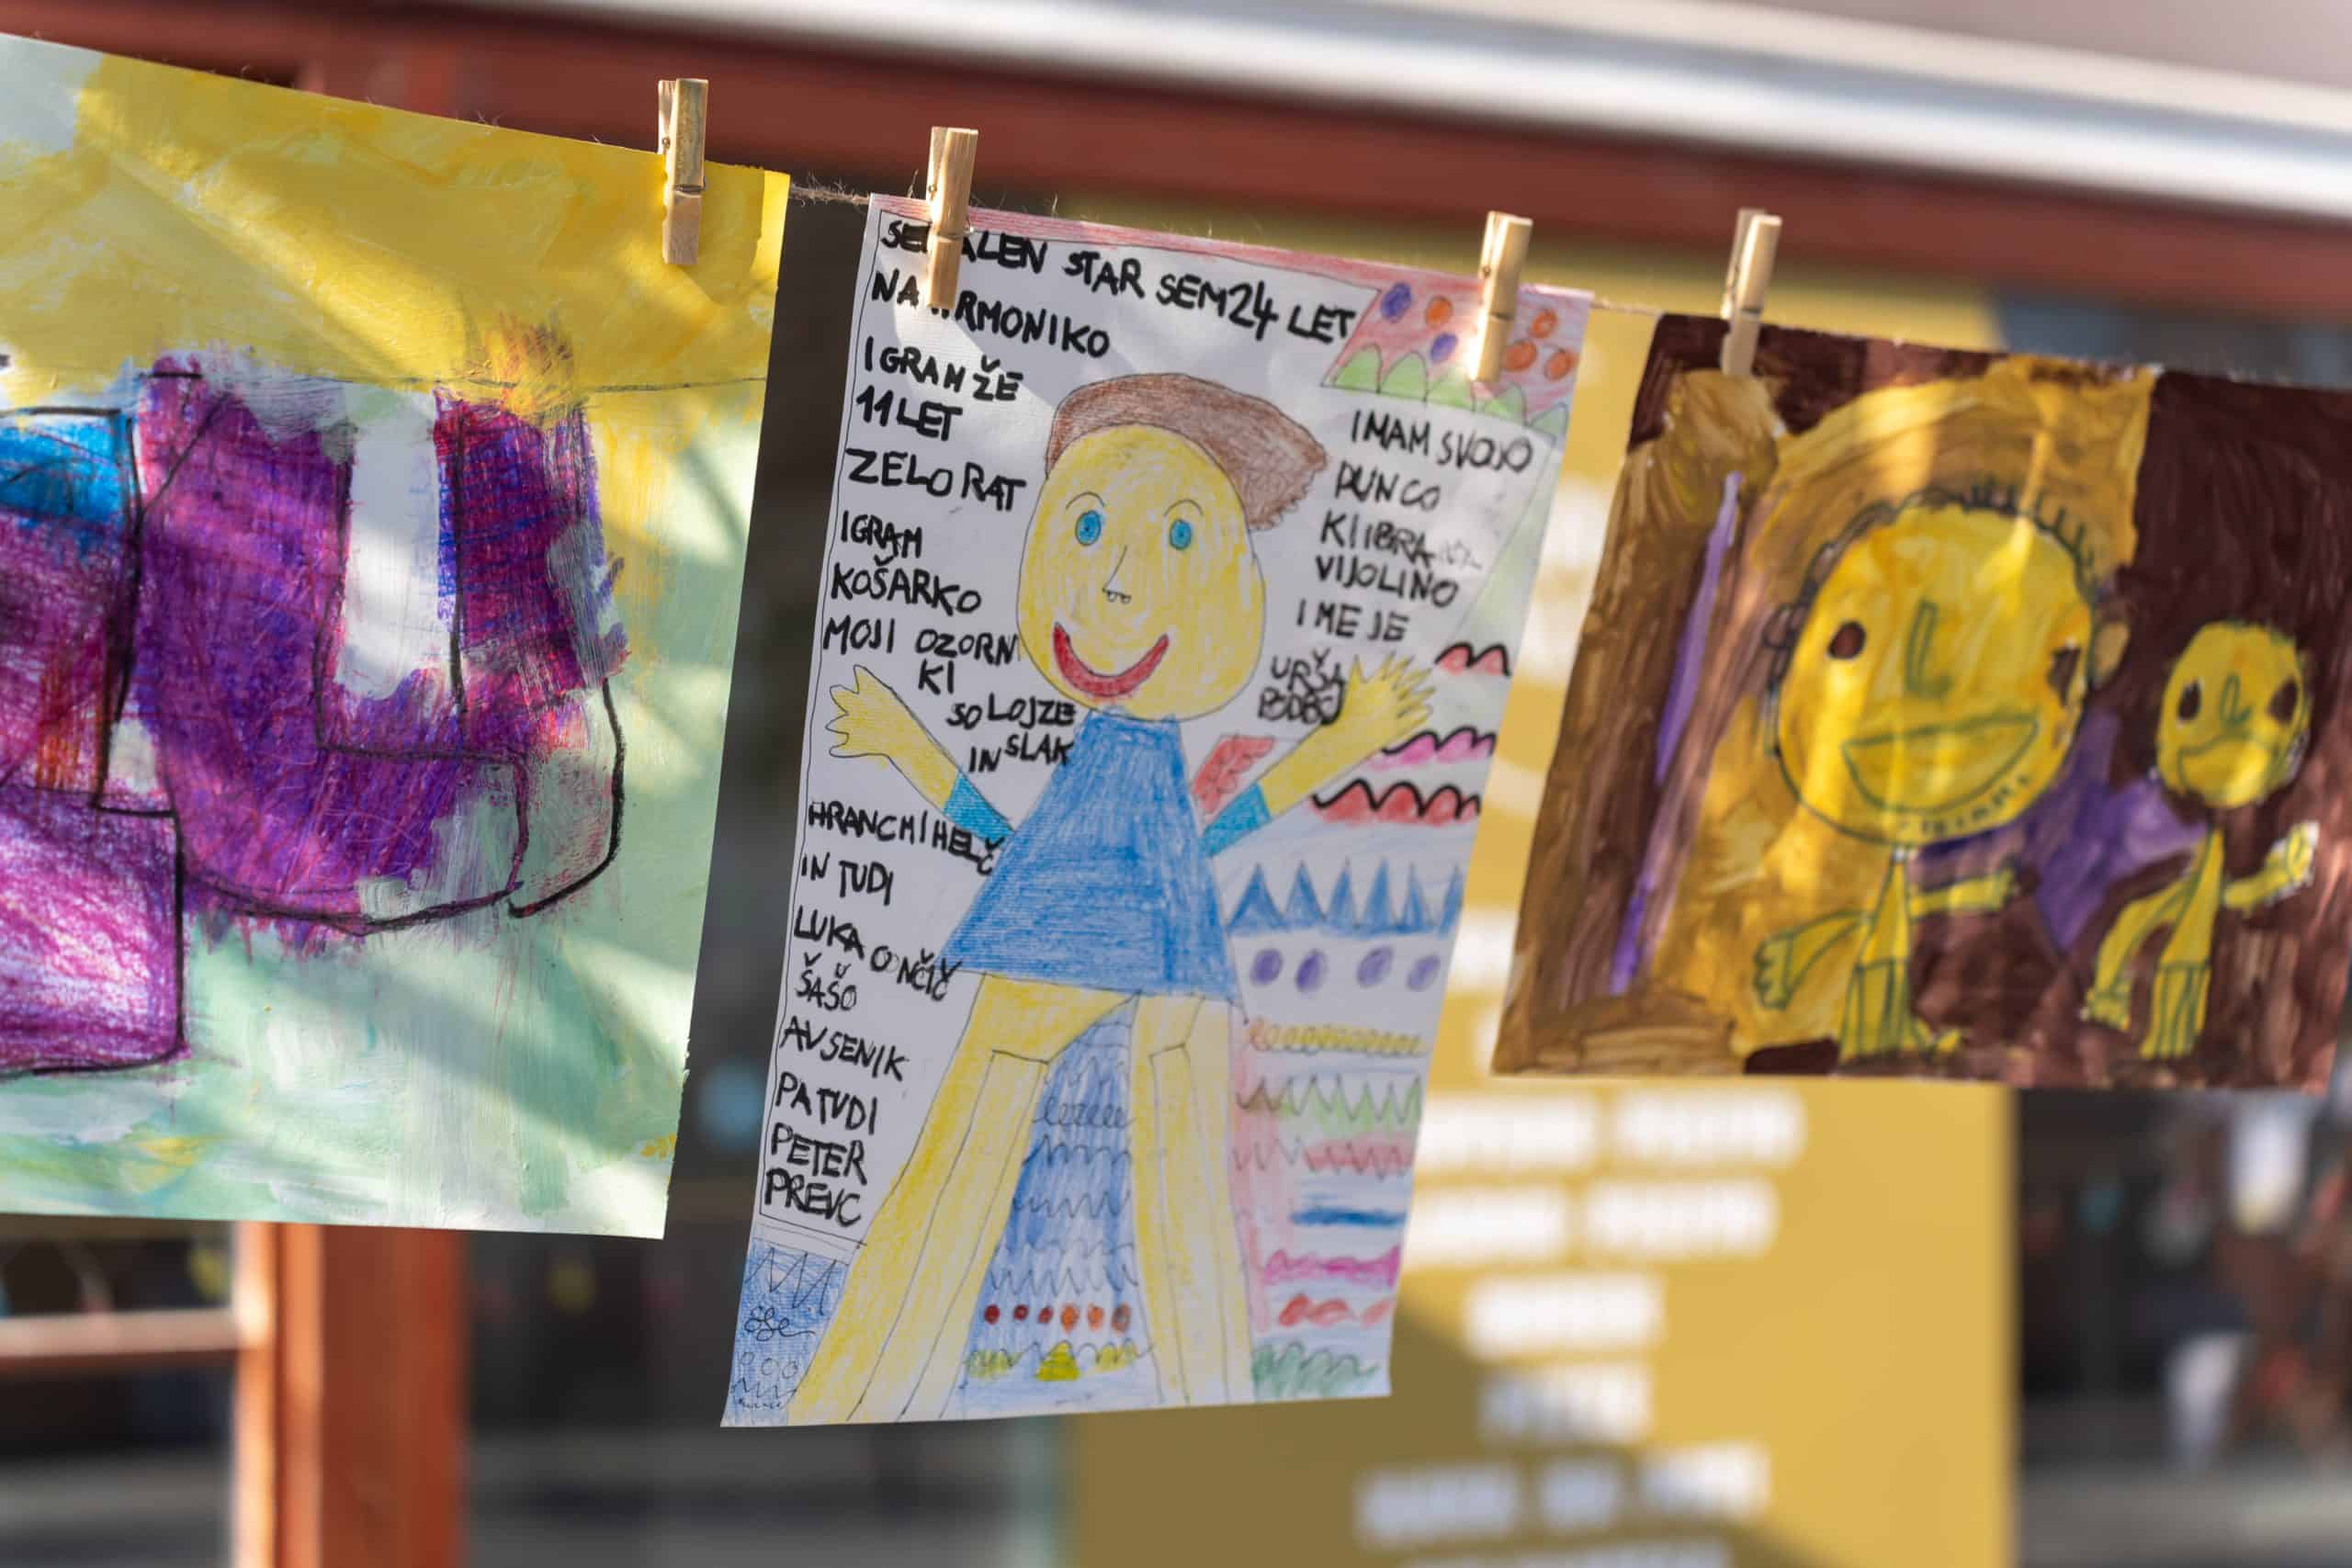 ALEN STAR SEM 24 LET
RMONIKO
IGRAM ŽE
11 LET
ZELO RAT
IGRAM
KOŠARKO
MOJI OZORN
KI
SO LOJZE
IN SLAK
HRANCMIHELČ
IN TUDI
LUKA
ŠAŠO
AVSENIK
PA TUDI
PETER
PREVC
IMAM SVOJO
PUNCO
KI IGRA
VIJOLINO
IME JE